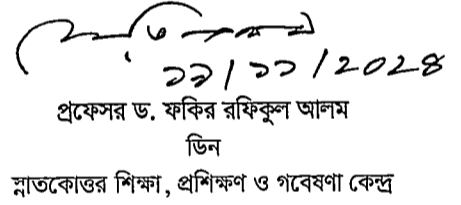 ১১/১১/২০২৪
প্রফেসর ড. ফকির রফিকুল আলম
ডিন
স্নাতকোত্তর শিক্ষা, প্রশিক্ষণ ও গবেষণা কেন্দ্র